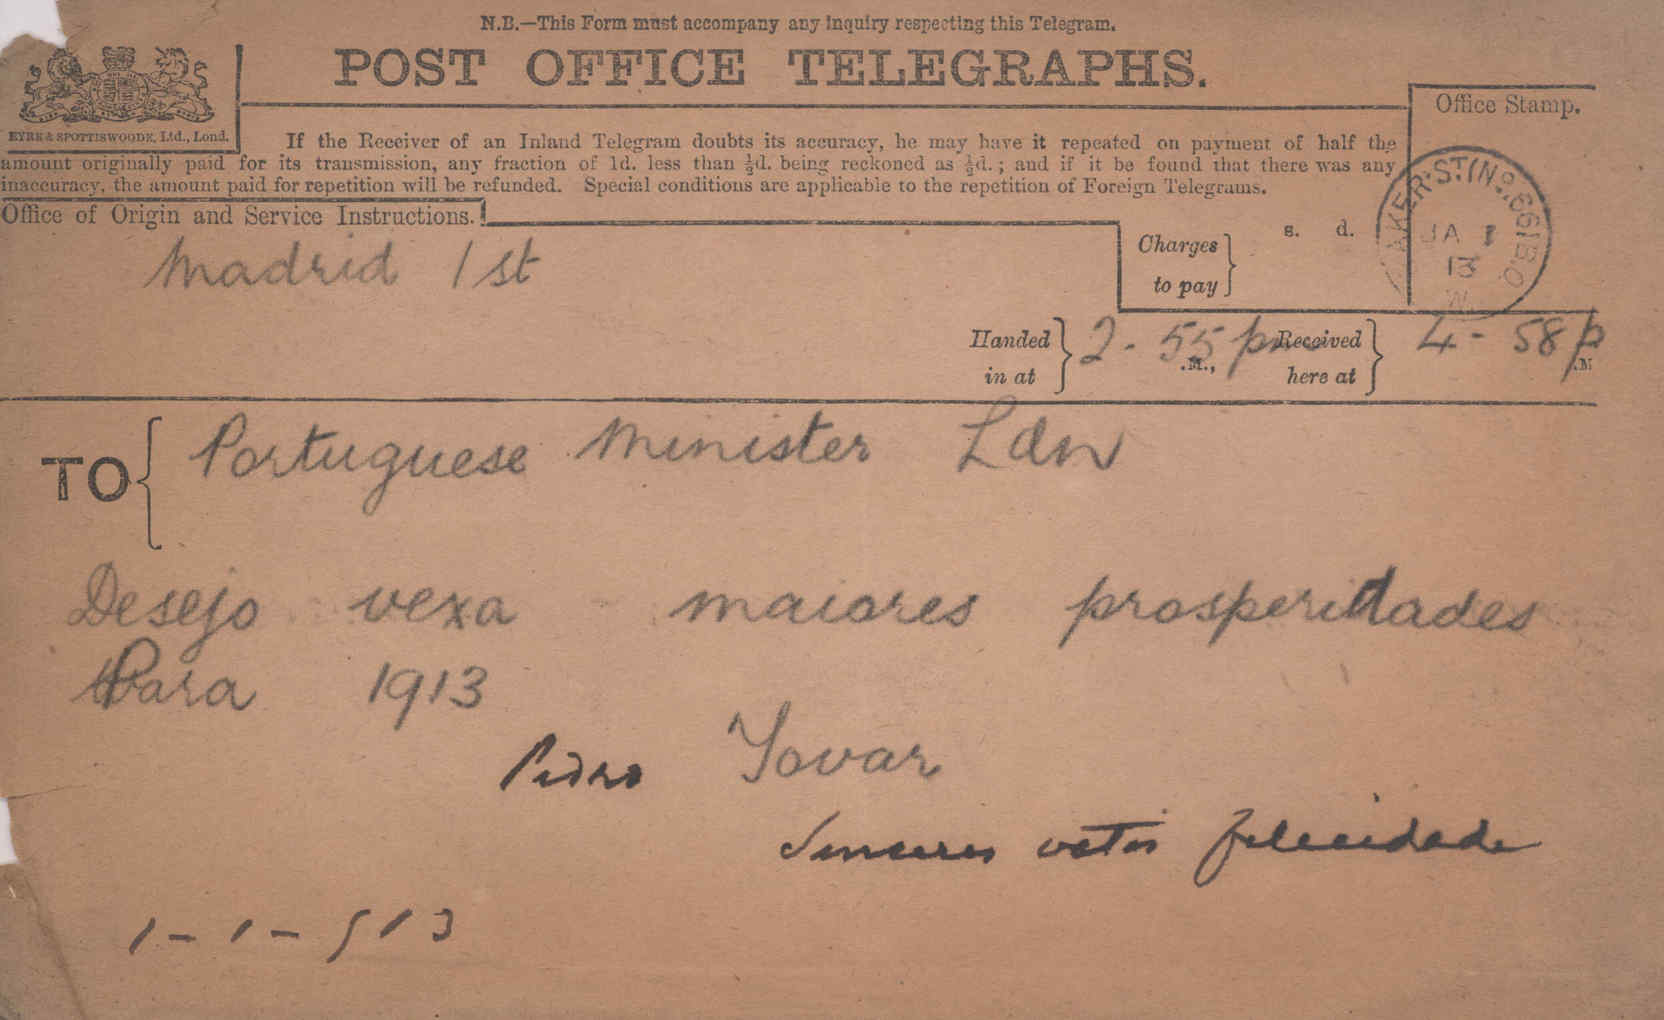 N.B.—This Form must accompany any inquiry respecting this Telegram.
POST OFFICE TELEGRAPHS.
EYRE & SPOTTISWOODE, Ltd., Lond.
Office Stamp.
If the Receiver of an Inland Telegram doubts its accuracy, he may have it repeated on payment of half the
amount originally paid for its transmission, any fraction of 1d. less than ½d. being reckoned as ½d.; and if it be found that there was any
inaccuracy, the amount paid for repetition will be refunded. Special conditions are applicable to the repetition of Foreign Telegrams.
AKER·ST.(No.66)B.O
JA 1
13
W.
Office of Origin and Service Instructions.
Madrid 1st
Charges to pay
s. d.
Handed in at 2-55 pm .M.,
Received here at 4-58 p .M
TO Portuguese Minister Ldn
Desejo vexa maiores prosperidades
Para 1913
Pedro Tovar
Sinceros votos felicidade
1-1-913